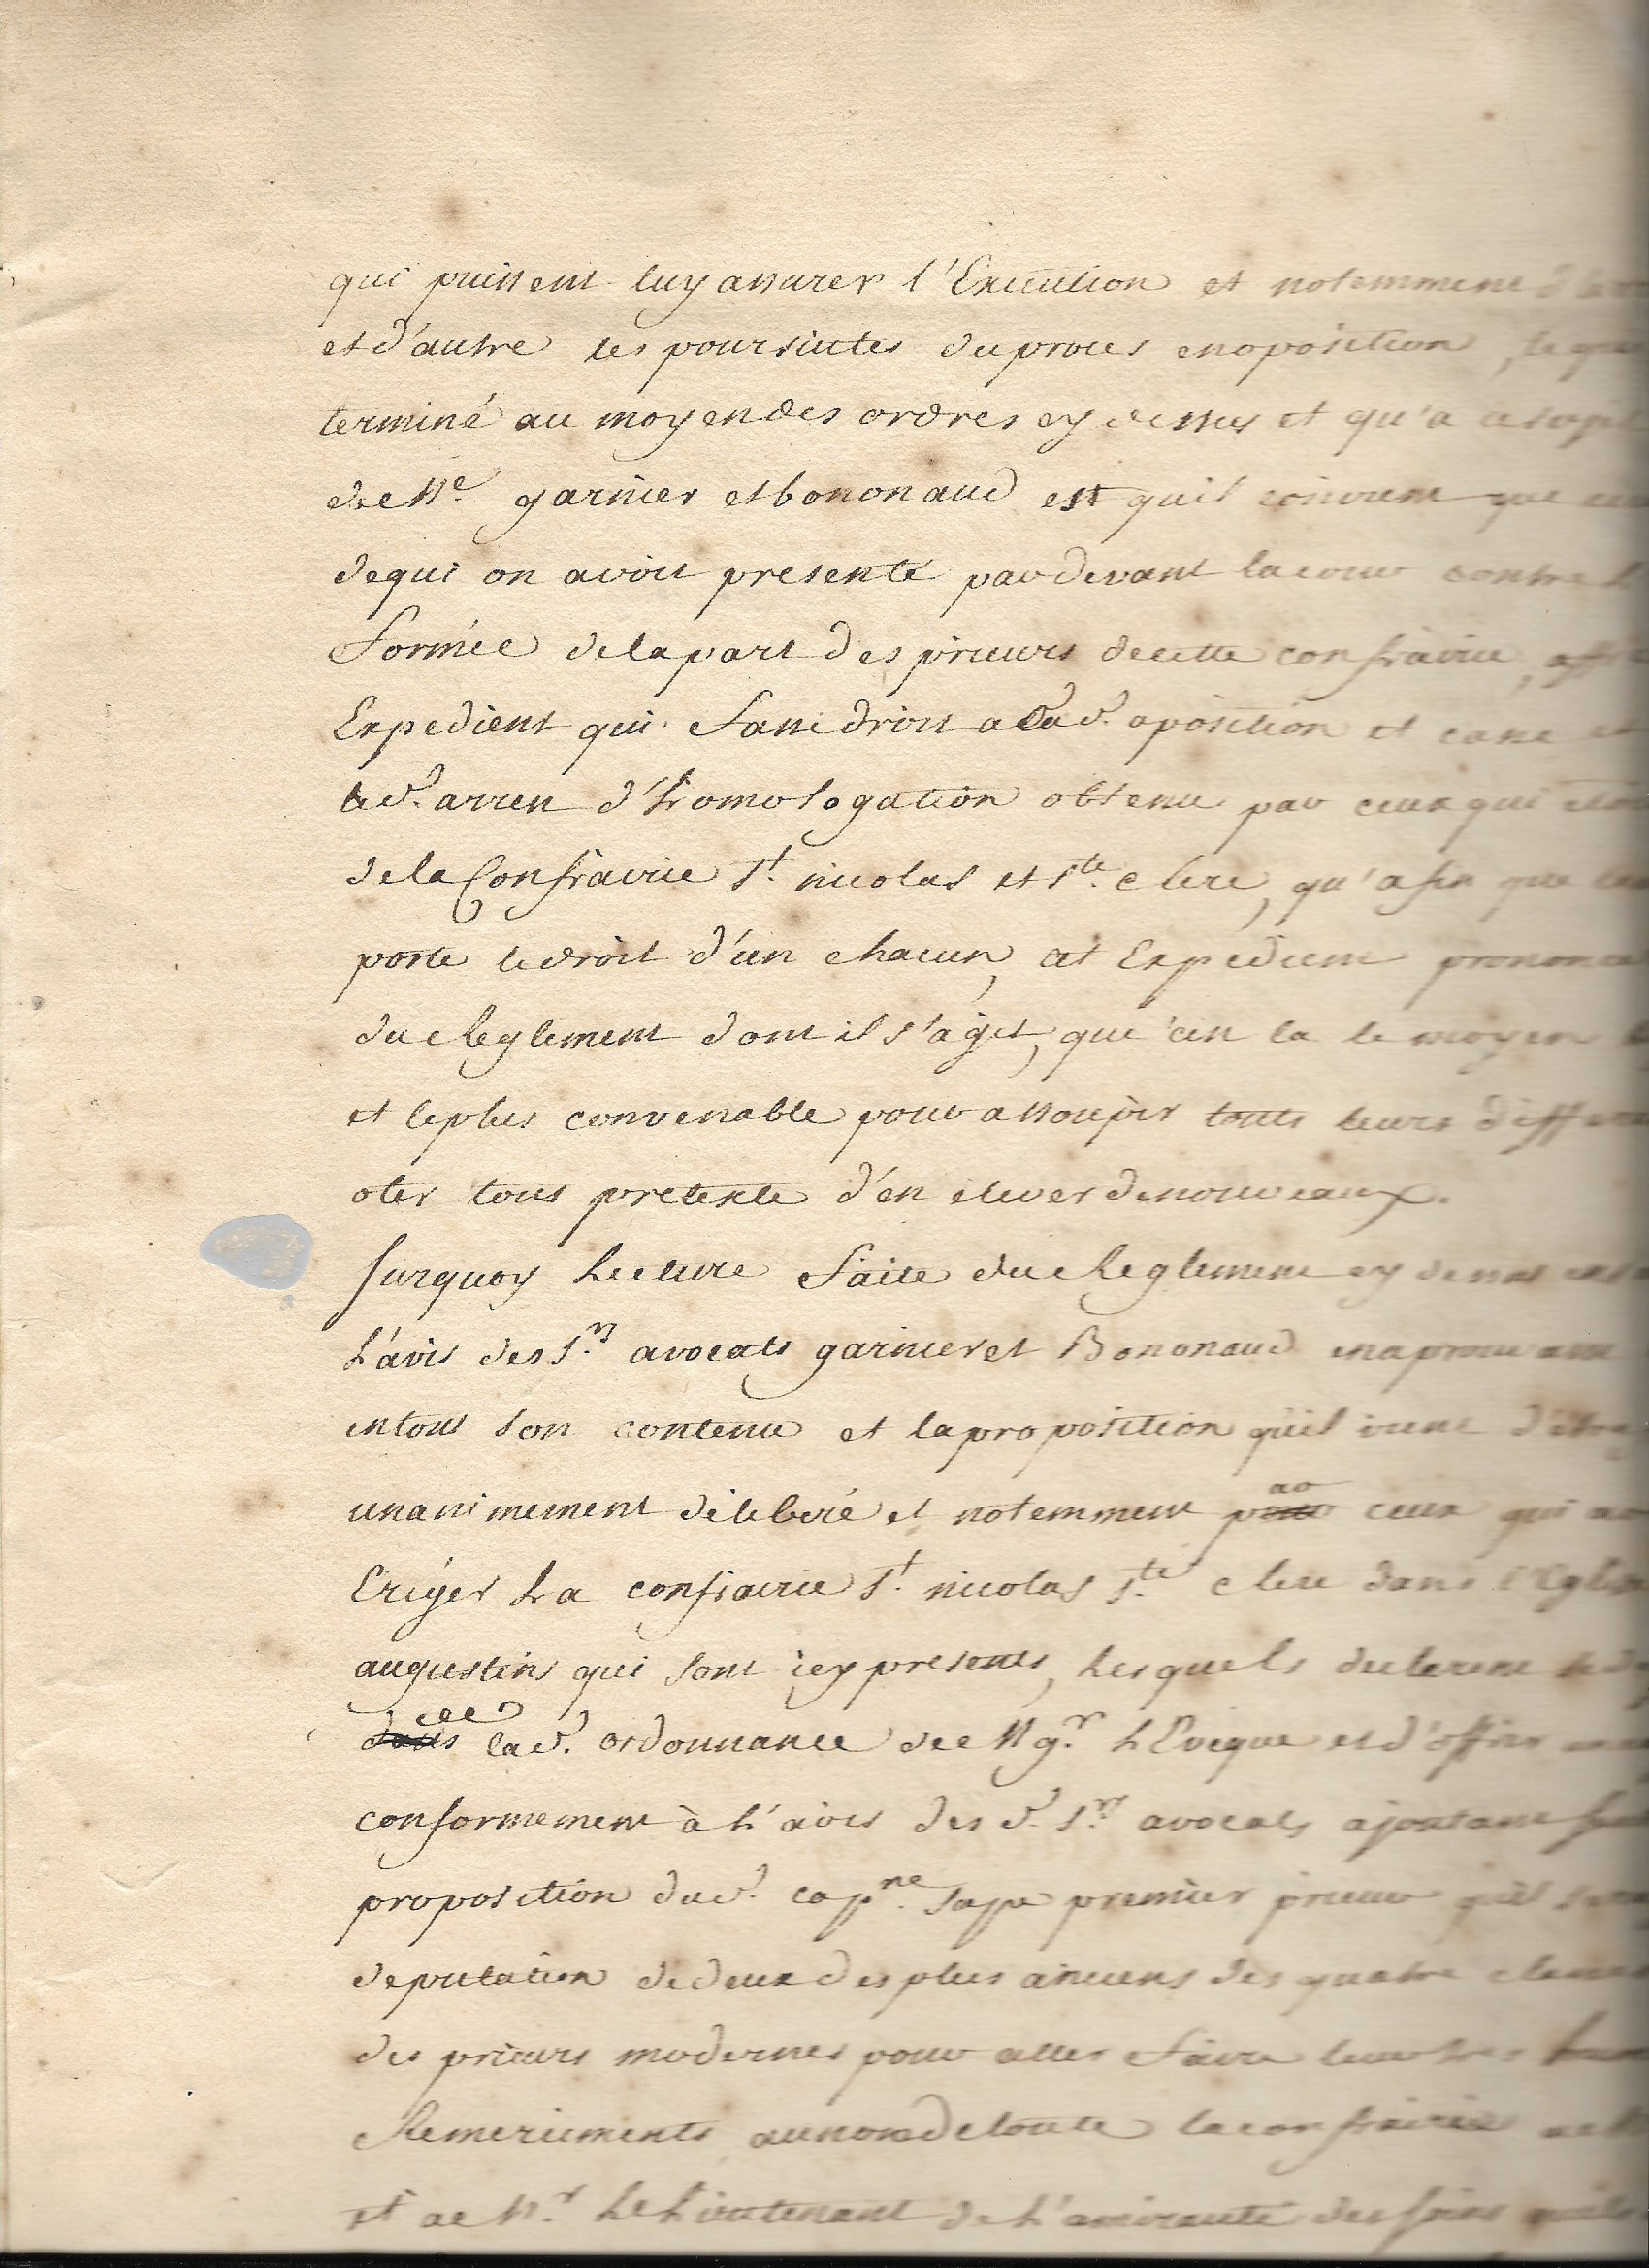 qui puissent luy assurer l'Execution et notemment
et d'autre les poursuites du proces en oposition,
terminé au moyen des ordres cy dessus et qu'a
de Me. garnier et bononaud est quil convient que
de qui on avoit presenté pardevant la cour contre
formée de la part des prieurs de cette confrairie,
Expedient qui fasse droit a lad. oposition et casse
led. arrest d'homologation obtenu par ceux qui
de la Confrairie St. nicolas et Ste. clere, qu'afin que
porte le droit d'un chacun, cet Expedient
du Reglement dont il s'agit, que c'est la le moyen
et le plus convenable pour assoupir touts leurs
oter tous pretexte d'en elever de nouveaux.
Surquoy Lecture faite du Reglement cy dessus
L'avis des Srs. avocats garnier et Bononaud en aprouvant
en tout son contenu et la proposition qu'il vient
unanimement déliberé et notemment par ceux qui
Eriger La confrairie St. nicolas Ste. clere dans l'Eglise
augustins qui sont icy presents, Lesquels declerent
de lad. ordonnance de Mgr. L'Evêque et d'offrir
conformement à L'avis des d. Srs. avocats ajoutant
proposition dud. capne. premier prieur qu'il
deputation de deux des plus anciens des quatre
des prieurs modernes pour aller faire leurs tres
Remeriements au nom de toute la confrairie
et a Mr. Le Lieutenant de L'amirauté des soins